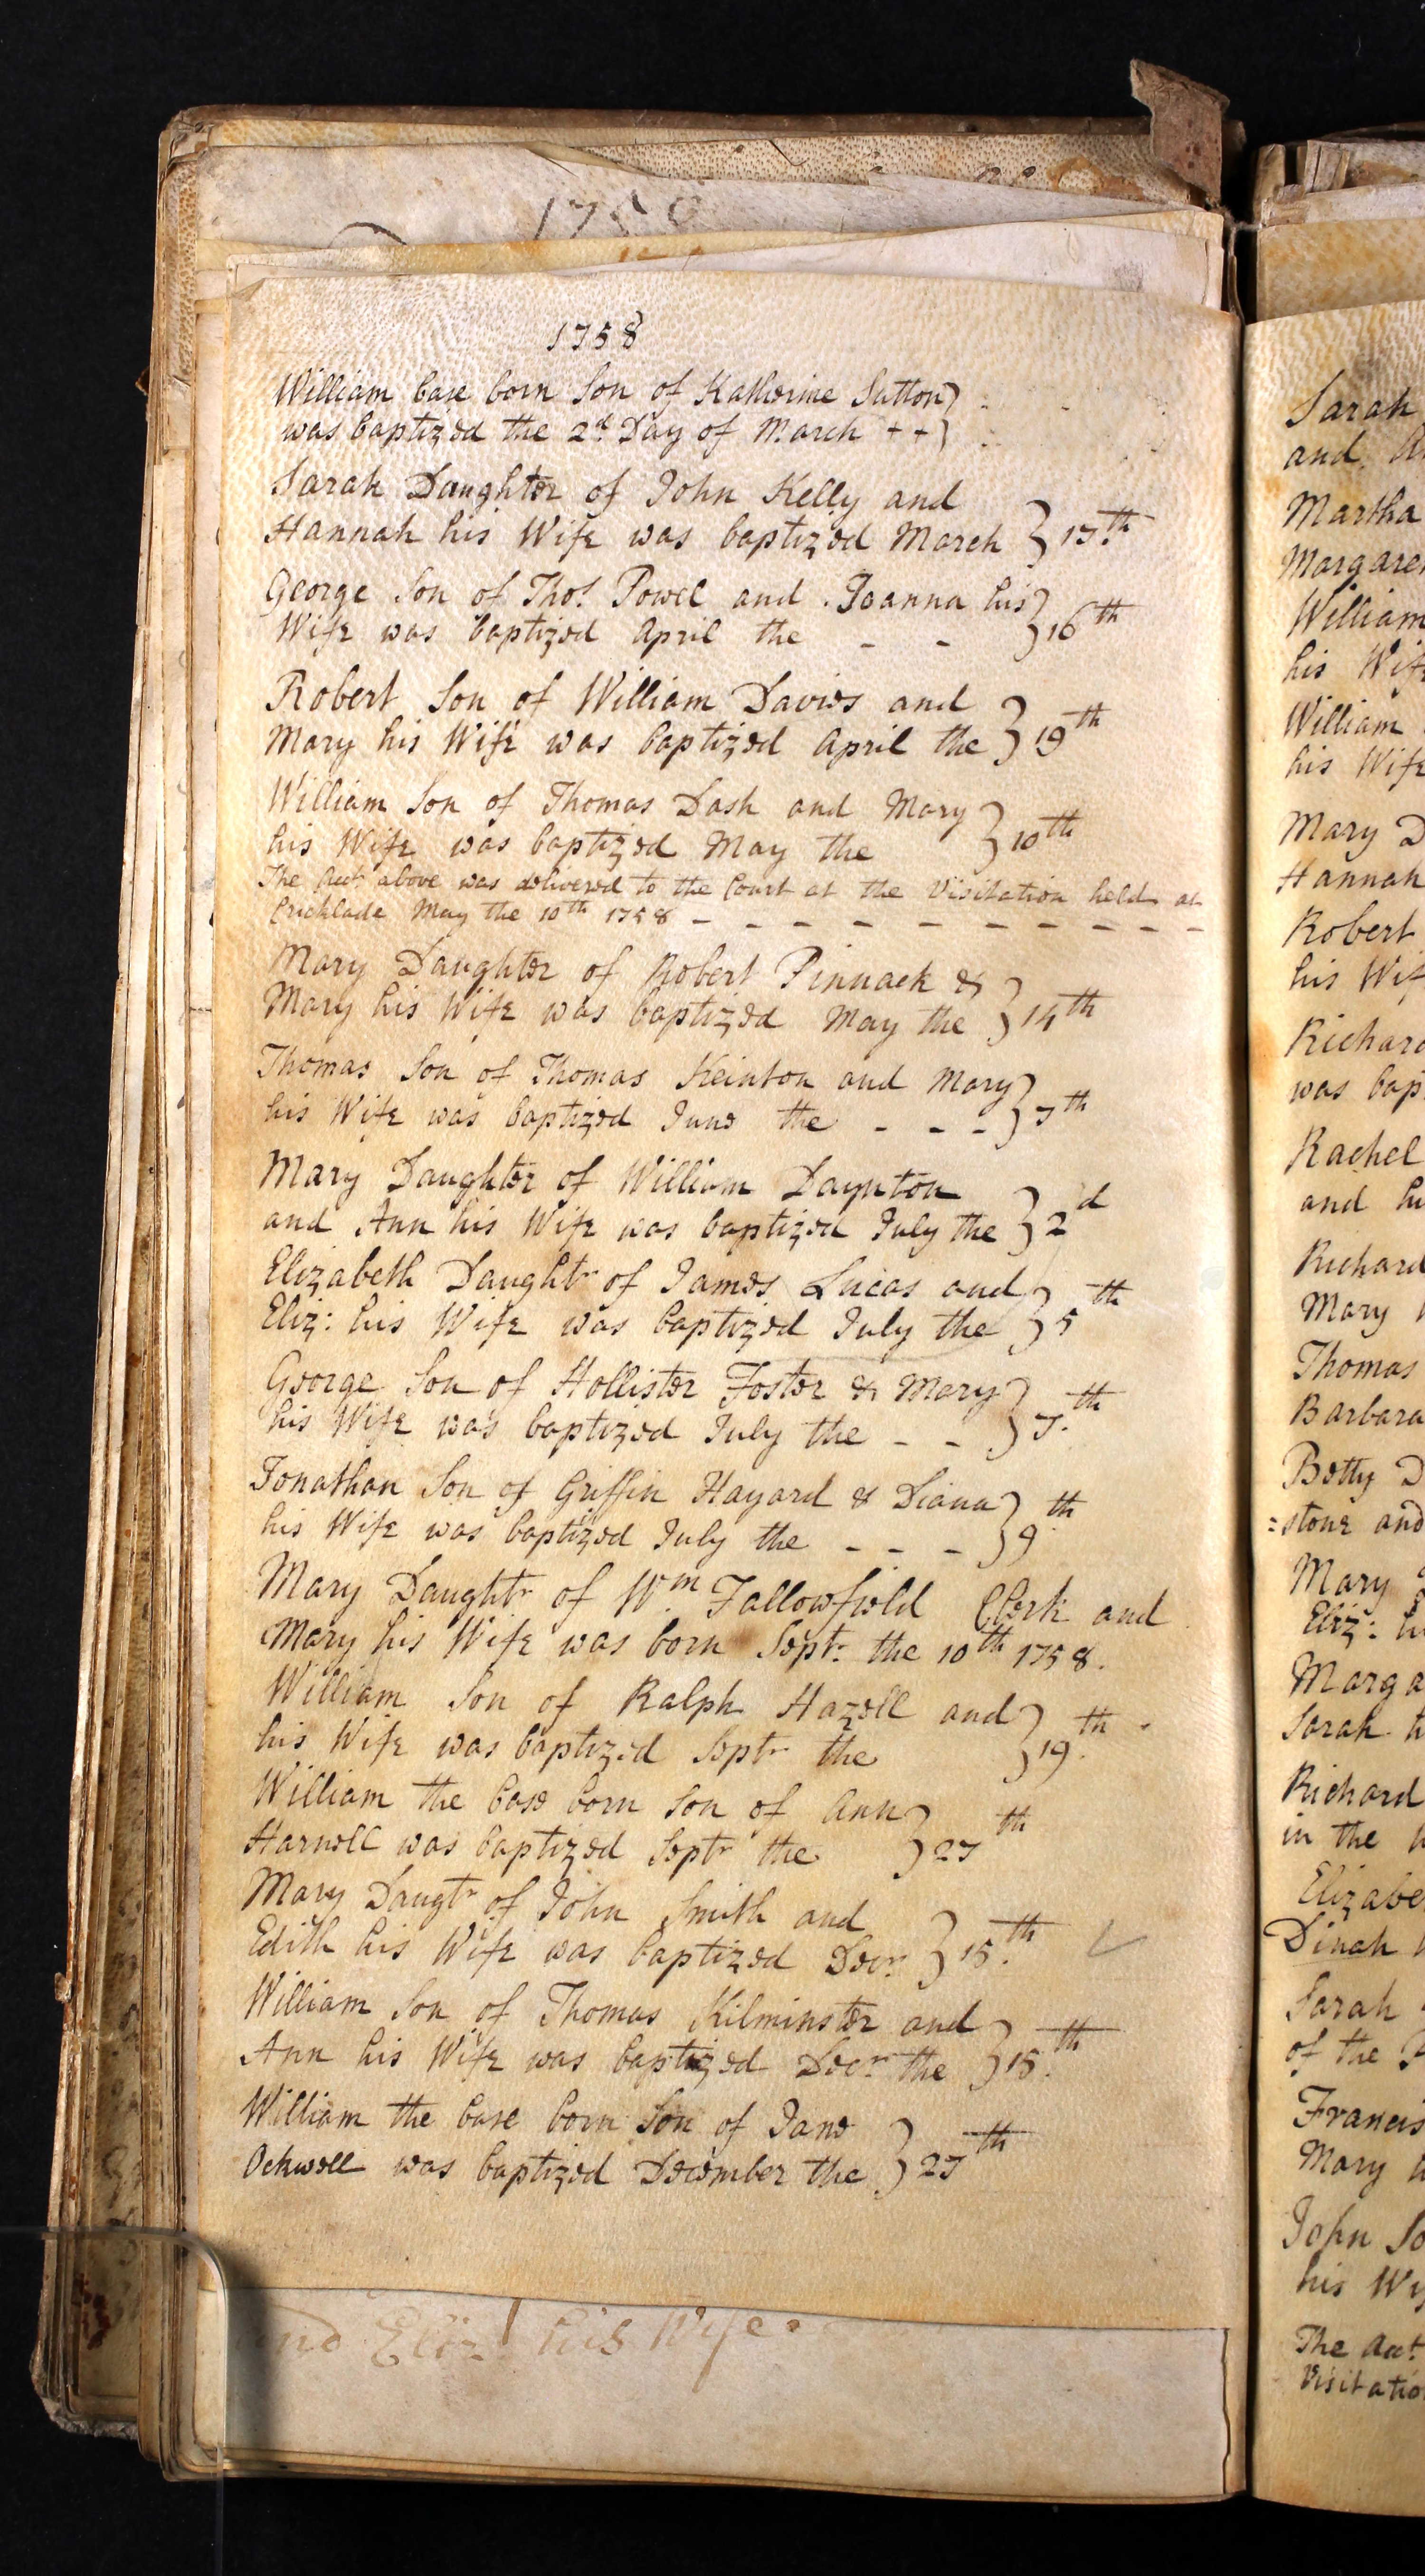 1758
1758
William base born Son of Katherine Sutton
was baptized the 2d. Day of March + +
Sarah Daughter of John Kelly and
Hannah his Wife was baptized March 17th
George Son of Thos. Powel and Joanna his
Wife was baptized April the - - 16th
Robert Son of William Davies and
Mary his Wife was baptized April the 19th
William Son of Thomas Dash and Mary
his Wife was baptized May the 10th
The Acct. above was delivered to the Court at the Visitation held at
Cricklade May the 10th 1758 - - - - - - - - - -
Mary Daughter of Robert Pinnack &
Mary his Wife was baptized May the 14th
Thomas Son of Thomas Keinton and Mary
his Wife was baptized June the - - - 7th
Mary Daughter of William Daynton
and Ann his Wife was baptized July the 2d
Elizabeth Daughtr of James Lucas and
Eliz: his Wife was baptized July the 5th
George Son of Hollister Foster & Mary
his Wife was baptized July the - - 7th
Jonathan Son of Griffin Hayard & Diana
his Wife was baptized July the - - - 9th
Mary Daughtr of Wm. Fallowfield Clerk and
Mary his Wife was born Septr. the 10th 1758.
William Son of Ralph Hazell and
his Wife was baptized Septr the 19th
William the base born Son of Ann
Harwell was baptized Septr the 27th
Mary Daugtr of John Smith and
Edith his Wife was baptized Decr. 15th
William Son of Thomas Kilminster and
Ann his Wife was baptized Decr. the 15th
William the base born Son of Jane
Ockwell was baptized December the 27th
and Eliz his Wife
Sarah
and
Martha
Margaret
William
his Wife
William
his Wife
Mary D
Hannah
Robert
his Wif
Richard
was bap
Rachel
and hi
Richard
Mary
Thomas
Barbara
Betty D
=stone and
Mary
Eliz: hi
Marga
Sarah h
Richard
in the
Elizabe
Dinah
Sarah
of the
Francis
Mary
John So
his Wi
The Acct.
Visitatio